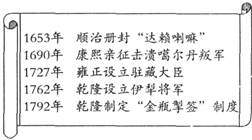 1653年 顺治册封“达赖喇嘛”
1690年 康熙亲征击溃噶尔丹叛军
1727年 雍正设立驻藏大臣
1762年 乾隆设立伊犁将军
1792年 乾隆制定“金瓶掣签”制度